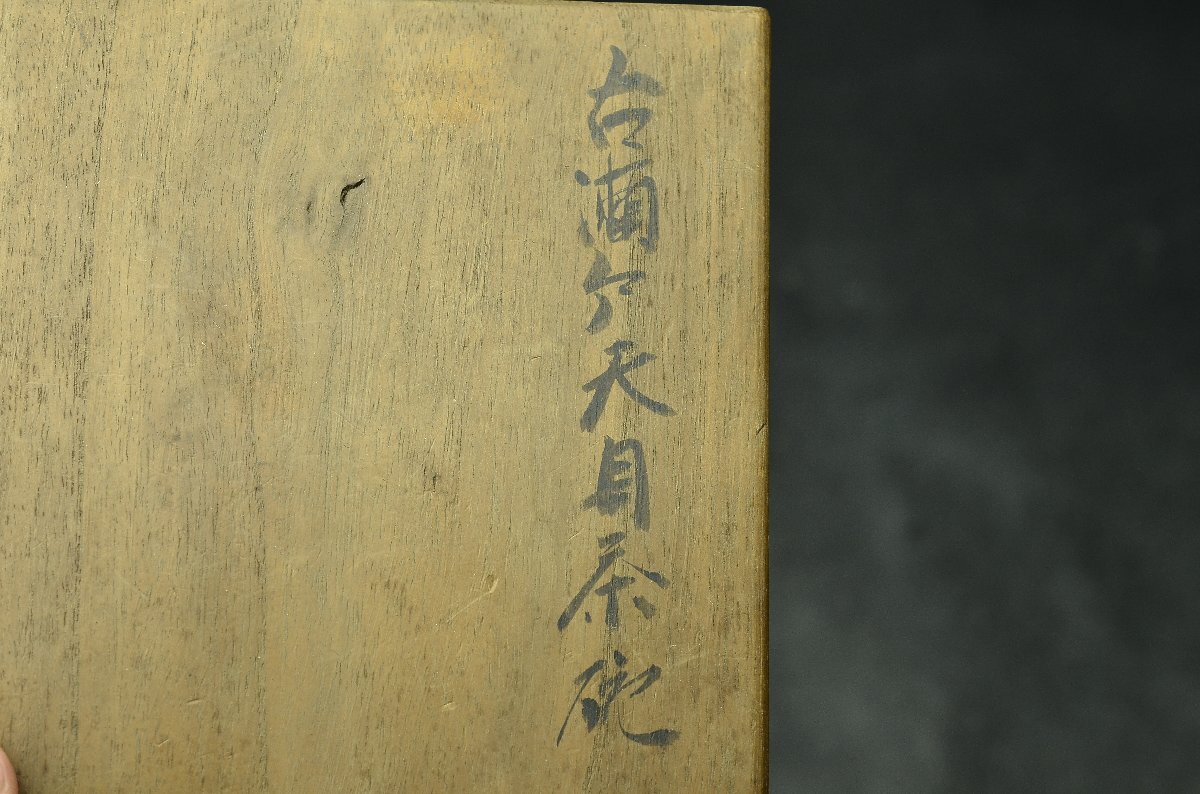 古瀬戸天目茶碗